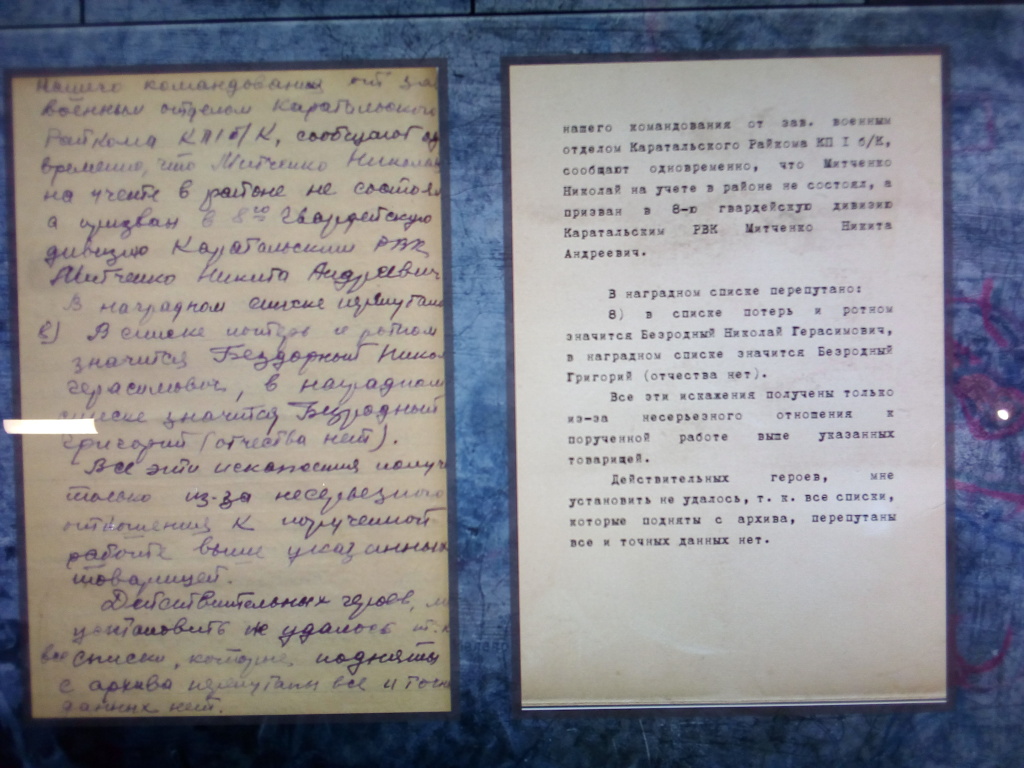 нашего командования от за
военным отделом Каратальского
Райкома КП/б/К, сообщают од
временно, что Митченко Николай
на учете в районе не состоял
а призван в 8ю Гвардейскую
дивизию Каратальским РВК
Митченко Никита Андреевич
В наградном списке перепутано
8) В списке потерь и ротном
значится Бездорный Никол
Герасимович, в наградном
списке значится Безродный
Григорий (отчества нет).
Все эти искажения получ
только из-за несерьезного
отношения к порученной
работе выше указанных
товарищей.
Действительных героев, м
установить не удалось т.к
все списки, которые подняты
с архива перепутаны все и точн
данных нет.
нашего командования от зав. военным
отделом Каратальского Райкома КП I б/К,
сообщают одновременно, что Митченко
Николай на учете в районе не состоял, а
призван в 8-ю гвардейскую дивизию
Каратальским РВК Митченко Никита
Андреевич.
В наградном списке перепутано:
8) в списке потерь и ротном
значится Безродный Николай Герасимович,
в наградном списке значится Безродный
Григорий (отчества нет).
Все эти искажения получены только
из-за несерьезного отношения к
порученной работе выше указанных
товарищей.
Действительных героев, мне
установить не удалось, т. к. все списки,
которые подняты с архива, перепутаны
все и точных данных нет.